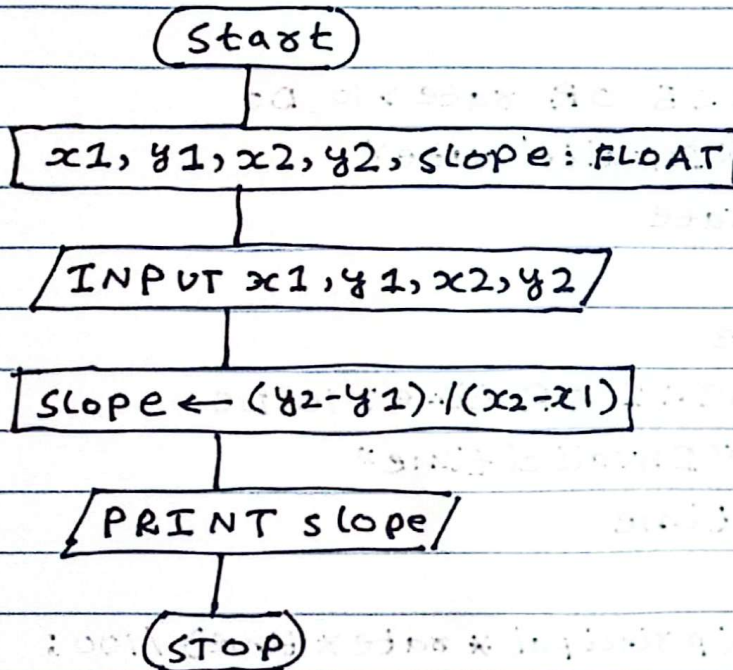 Start
x1, y1, x2, y2, slope: FLOAT
INPUT x1, y1, x2, y2
slope ← (y2-y1) / (x2-x1)
PRINT slope
STOP